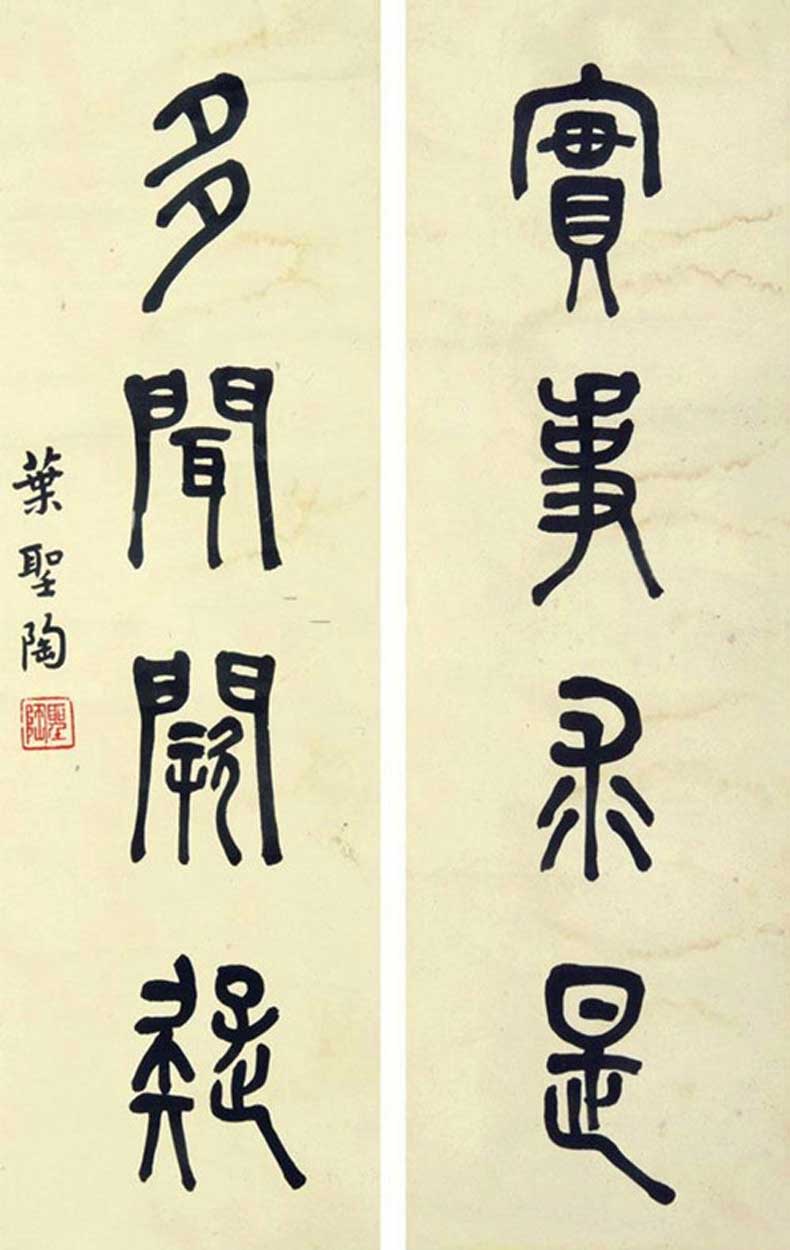 實事求是
多聞闕疑
葉聖陶
聖陶